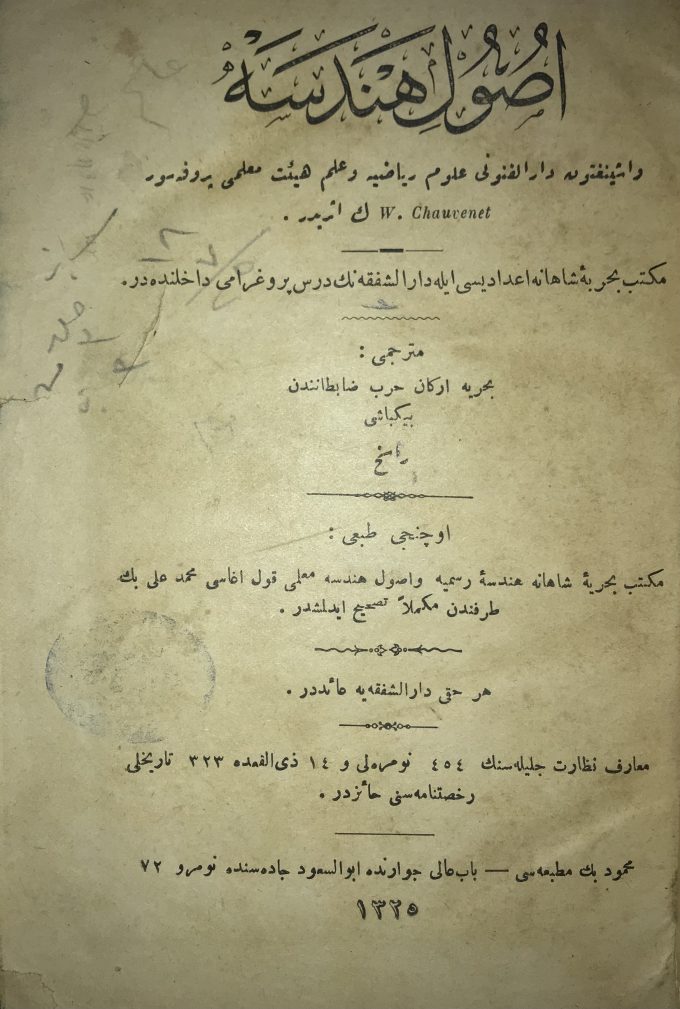 اُصُولِ هَنْدَسَه
واشينغتون دارالفنونى علوم رياضيه وعلم هيئت معلمى پروفه سور
W. Chauvenet ك اثريدر .
مكتب بحريۀ شاهانه اعداديسى ايله دارالشفقه نك درس پروغرامى داخلنده در.
مترجمى :
بحريه اركان حرب ضابطانندن
بيكباشى
راسخ
اوچنجى طبعى :
مكتب بحريۀ شاهانه هندسۀ رسميه واصول هندسه معلمى قول اغاسى محمد على بك
طرفندن مكملاً تصحيح ايدلمشدر .
هر حقى دارالشفقه يه عائددر .
معارف نظارت جليله سنك ٤٥٤ نومره لى و ١٤ ذى القعده ٣٢٣ تاريخلى
رخصتنامه سنى حائزدر .
محمود بك مطبعه سى — باب عالى جوارنده ابوالسعود جاده سنده نومرو ٧٢
١٣٢٥